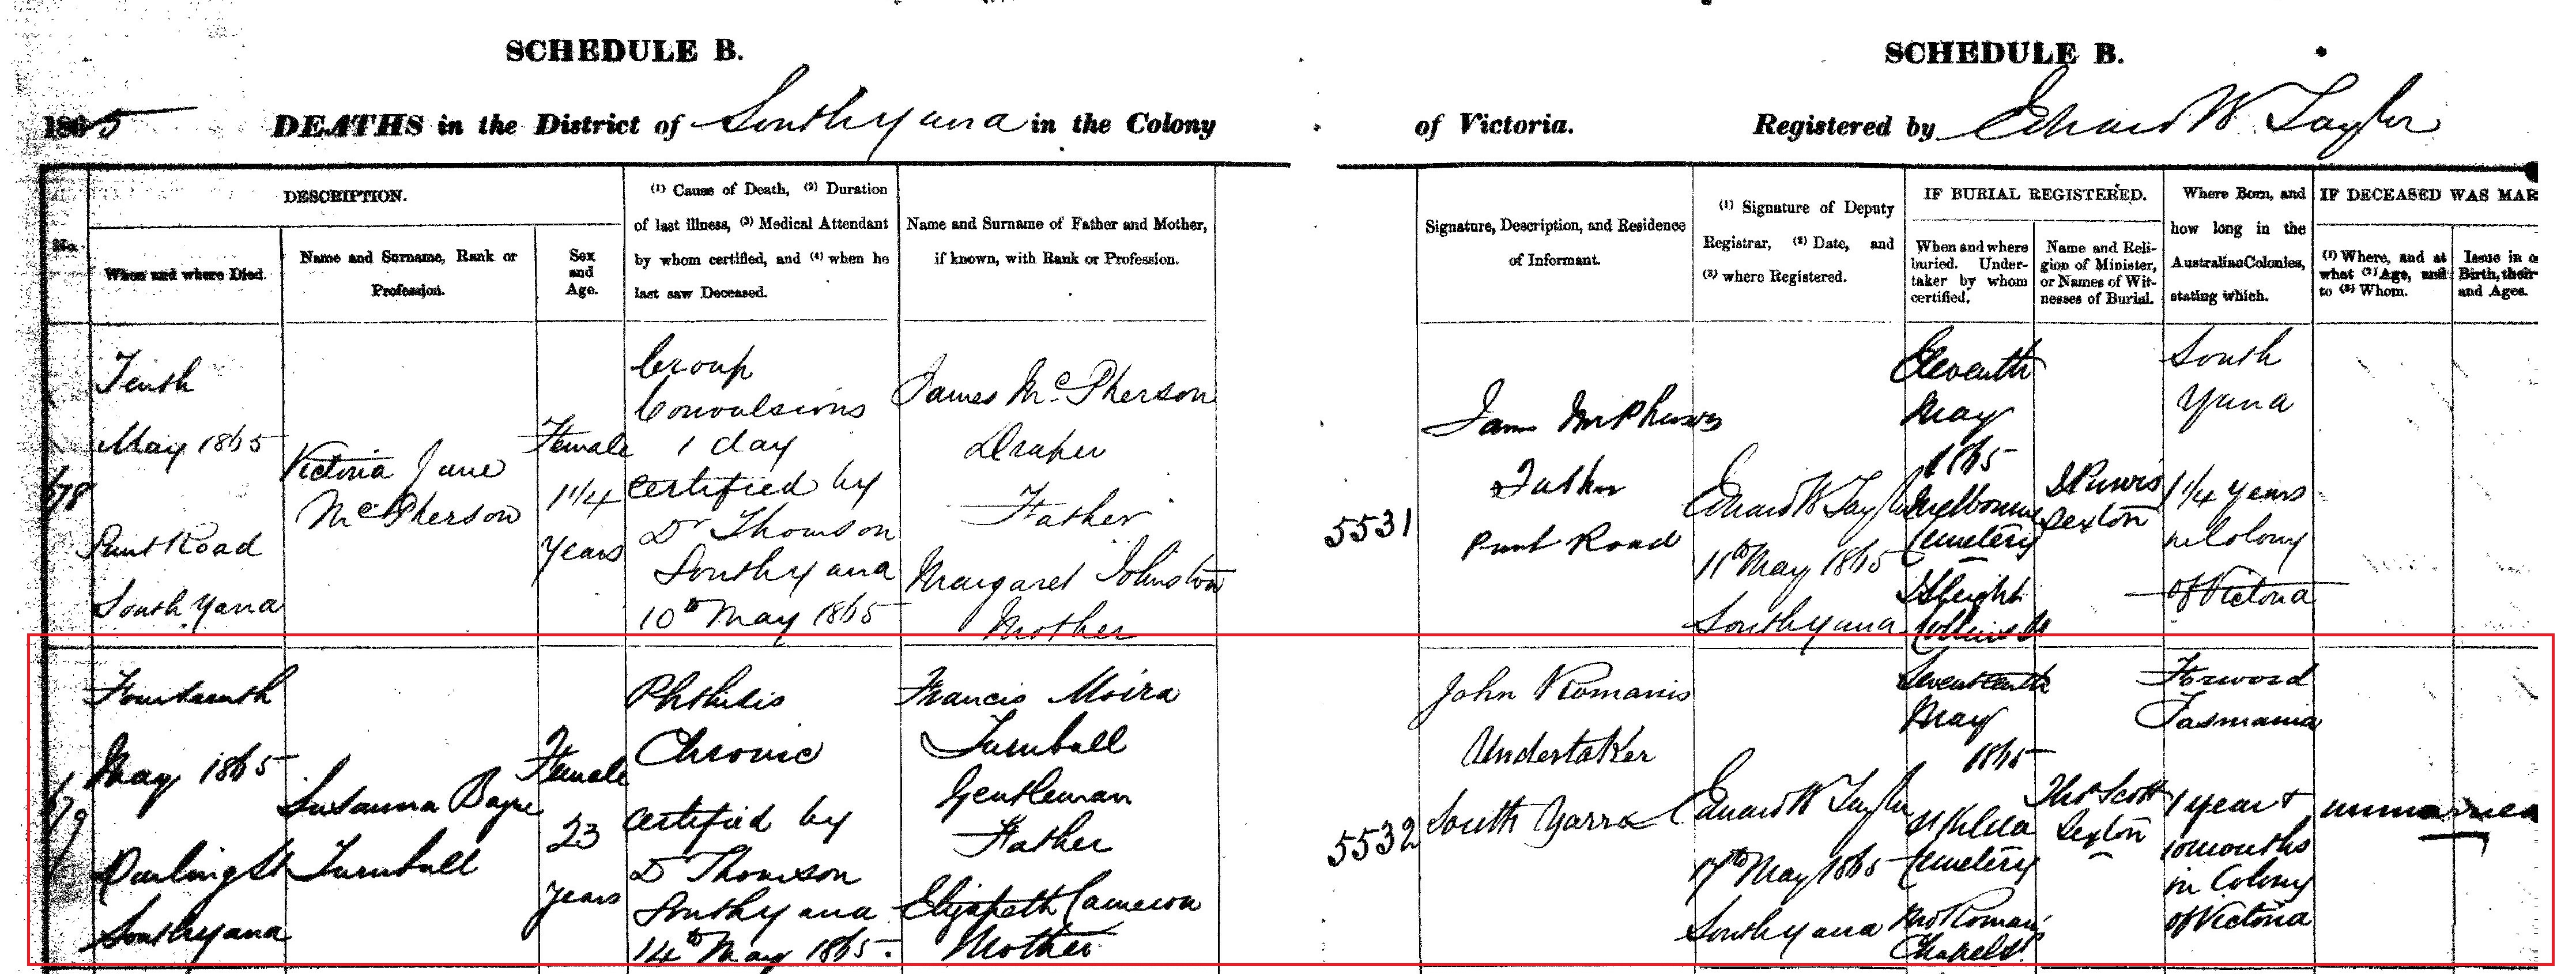 SCHEDULE B.
SCHEDULE B.
1865 DEATHS in the District of South Yarra in the Colony
of Victoria. Registered by Edward W. Taylor
DESCRIPTION.
No.
When and where Died.
Name and Surname, Rank or
Profession.
Sex
and
Age.
(1) Cause of Death, (2) Duration
of last illness, (3) Medical Attendant
by whom certified, and (4) when he
last saw Deceased.
Name and Surname of Father and Mother,
if known, with Rank or Profession.
Signature, Description, and Residence
of Informant.
(1) Signature of Deputy
Registrar, (2) Date, and
(3) where Registered.
IF BURIAL REGISTERED.
When and where
buried. Under-
taker by whom
certified.
Name and Reli-
gion of Minister,
or Names of Wit-
nesses of Burial.
Where Born, and
how long in the
Australian Colonies,
stating which.
IF DECEASED WAS MAR
(1) Where, and at
what (2) Age, and
to (3) Whom.
Issue in o
Birth, their
and Ages.
678
Tenth
May 1865
Punt Road
South Yarra
Victoria Jane
McPherson
Female
1 1/4
years
Croup
Convulsions
1 day
Certified by
Dr Thomson
South Yarra
10th May 1865
James McPherson
Draper
Father
Margaret Johnston
Mother
5531
James McPherson
Father
Punt Road
Edward W Taylor
11th May 1865
South Yarra
Eleventh
May
1865
Melbourne
Cemetery
Sleight
Collins St
Purvis
Sexton
South
Yarra
1 1/4 years
in Colony
of Victoria
679
Fourteenth
May 1865
Darling St
South Yarra
Susanna Bayne
Turnbull
Female
23
years
Phthisis
Chronic
Certified by
Dr Thomson
South Yarra
14th May 1865.
Francis Moira
Turnbull
Gentleman
Father
Elizabeth Cameron
Mother
5532
John Romanis
Undertaker
South Yarra
Edward W Taylor
17th May 1865
South Yarra
Seventeenth
May
1865
St Kilda
Cemetery
Jno Romanis
Chapel St.
Thos Scott
Sexton
Forword
Tasmania
1 year &
10 months
in Colony
of Victoria
unmarried